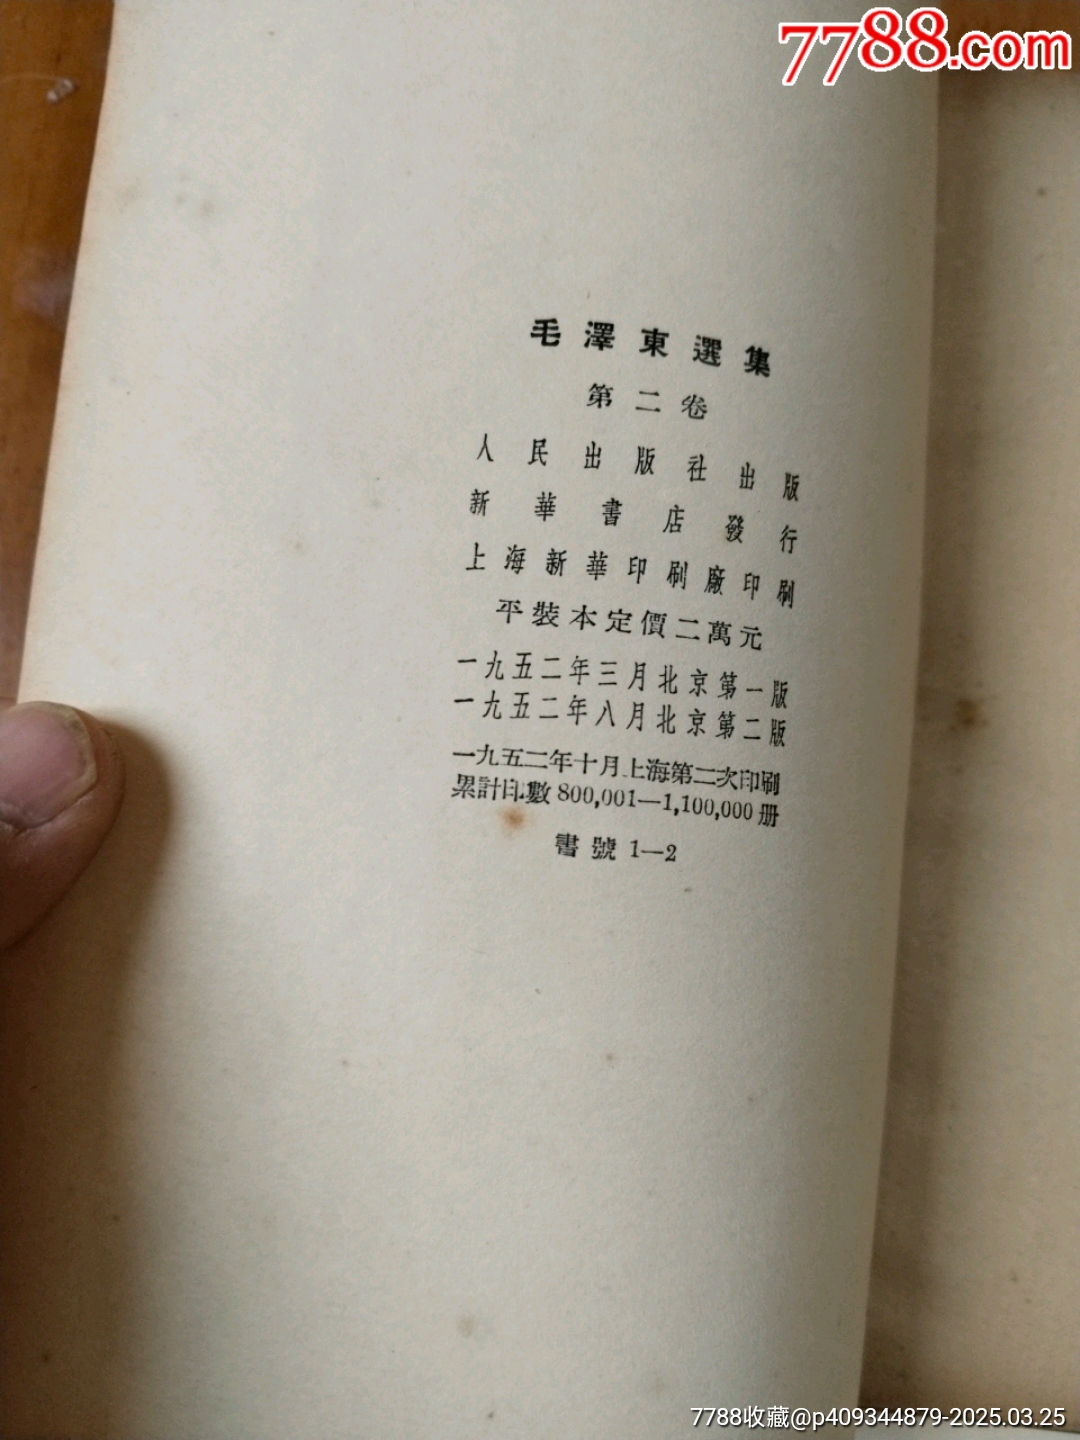 7788.com
毛澤東選集
第二卷
人民出版社出版
新華書店發行
上海新華印刷廠印刷
平裝本定價二萬元
一九五二年三月北京第一版
一九五二年八月北京第二版
一九五二年十月上海第二次印刷
累計印數 800,001—1,100,000 册
書號 1—2
7788收藏@p409344879-2025.03.25